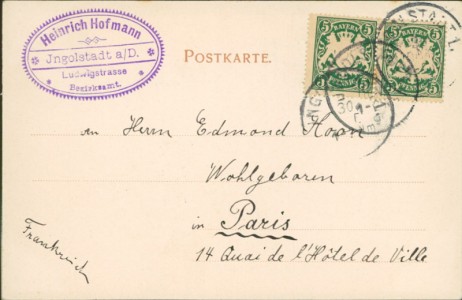 Heinrich Hofmann
Jngolstadt a/D.
Ludwigstrasse
Bezirksamt.
POSTKARTE.
BAYERN
5 5
5 PFENNIG 5
BAYERN
5 5
5 PFENNIG 5
An Herrn Edmond
Wohlgeboren
in Paris
14 Quai de l'Hôtel de Ville
Frankreich